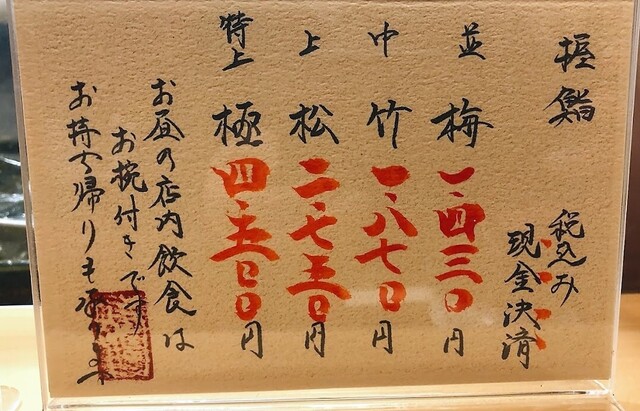 握鮨
税込み
現金決済
並 梅 一、四三〇円
中 竹 一、八七〇円
上 松 二、七五〇円
特上 極 四、五〇〇円
お昼の店内飲食は
お椀付きです
お持ち帰りも承ります